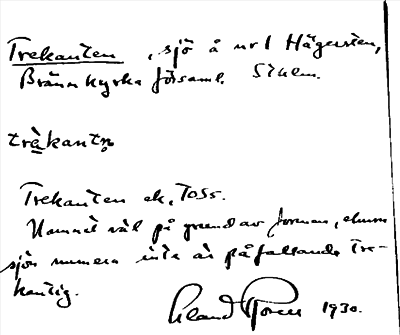 Trekanten, sjö å nr 1 Hägersten,
Brännkyrka församl. Sthlm.
trèkantn̥
Trekanten ek, Toss.
Namnet väl på grund av formen, ehuru
sjön numera inte är påfallande tre-
kantig.
1930.